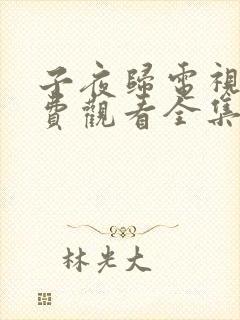 子夜歸電視
費觀看全集
林光大